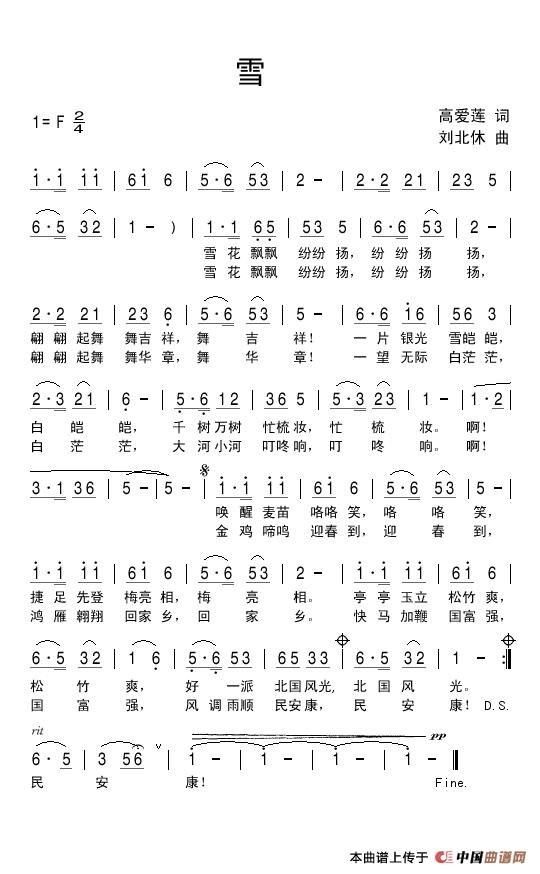 雪
1=F 2/4
高爱莲 词
刘北休 曲
1·1 11 | 61 6 | 5·6 53 | 2 - | 2·2 21 | 23 5 |
6·5 32 | 1 - ) | 1·1 65 | 53 5 | 6·6 53 | 2 - |
雪 花 飘飘 纷纷 扬， 纷 纷 扬 扬，
雪 花 飘飘 纷纷 扬， 纷 纷 扬 扬，
2·2 21 | 23 6 | 5·6 53 | 5 - | 6·6 16 | 56 3 |
翩 翩 起舞 舞吉 祥， 舞 吉 祥！ 一 片 银光 雪皑 皑，
翩 翩 起舞 舞华 章， 舞 华 章！ 一 望 无际 白茫 茫，
2·3 21 | 6 - | 5·6 12 | 36 5 | 5·3 23 | 1 - | 1·2 |
白 皑 皑， 千 树 万树 忙梳 妆， 忙 梳 妆。 啊！
白 茫 茫， 大 河 小河 叮咚 响， 叮 咚 响。 啊！
3·1 36 | 5 - | 5 - | 1·1 11 | 61 6 | 5·6 53 | 5 - |
唤 醒 麦苗 咯咯 笑， 咯 咯 笑，
金 鸡 啼鸣 迎春 到， 迎 春 到，
1·1 11 | 61 6 | 5·6 53 | 2 - | 1·1 11 | 61 6 |
捷 足 先登 梅亮 相， 梅 亮 相。 亭 亭 玉立 松竹 爽，
鸿 雁 翱翔 回家 乡， 回 家 乡。 快 马 加鞭 国富 强，
6·5 32 | 1 6 | 5·6 53 | 65 33 | 6·5 32 | 1 - :||
松 竹 爽， 好 一派 北国 风光, 北 国 风 光。
国 富 强， 风 调 雨顺 民安 康， 民 安 康！ D.S.
rit pp
6·5 | 3 56 ∨ | 1 - | 1 - | 1 - | 1 - ||
民 安 康！ Fine.
本曲谱上传于 中国曲谱网